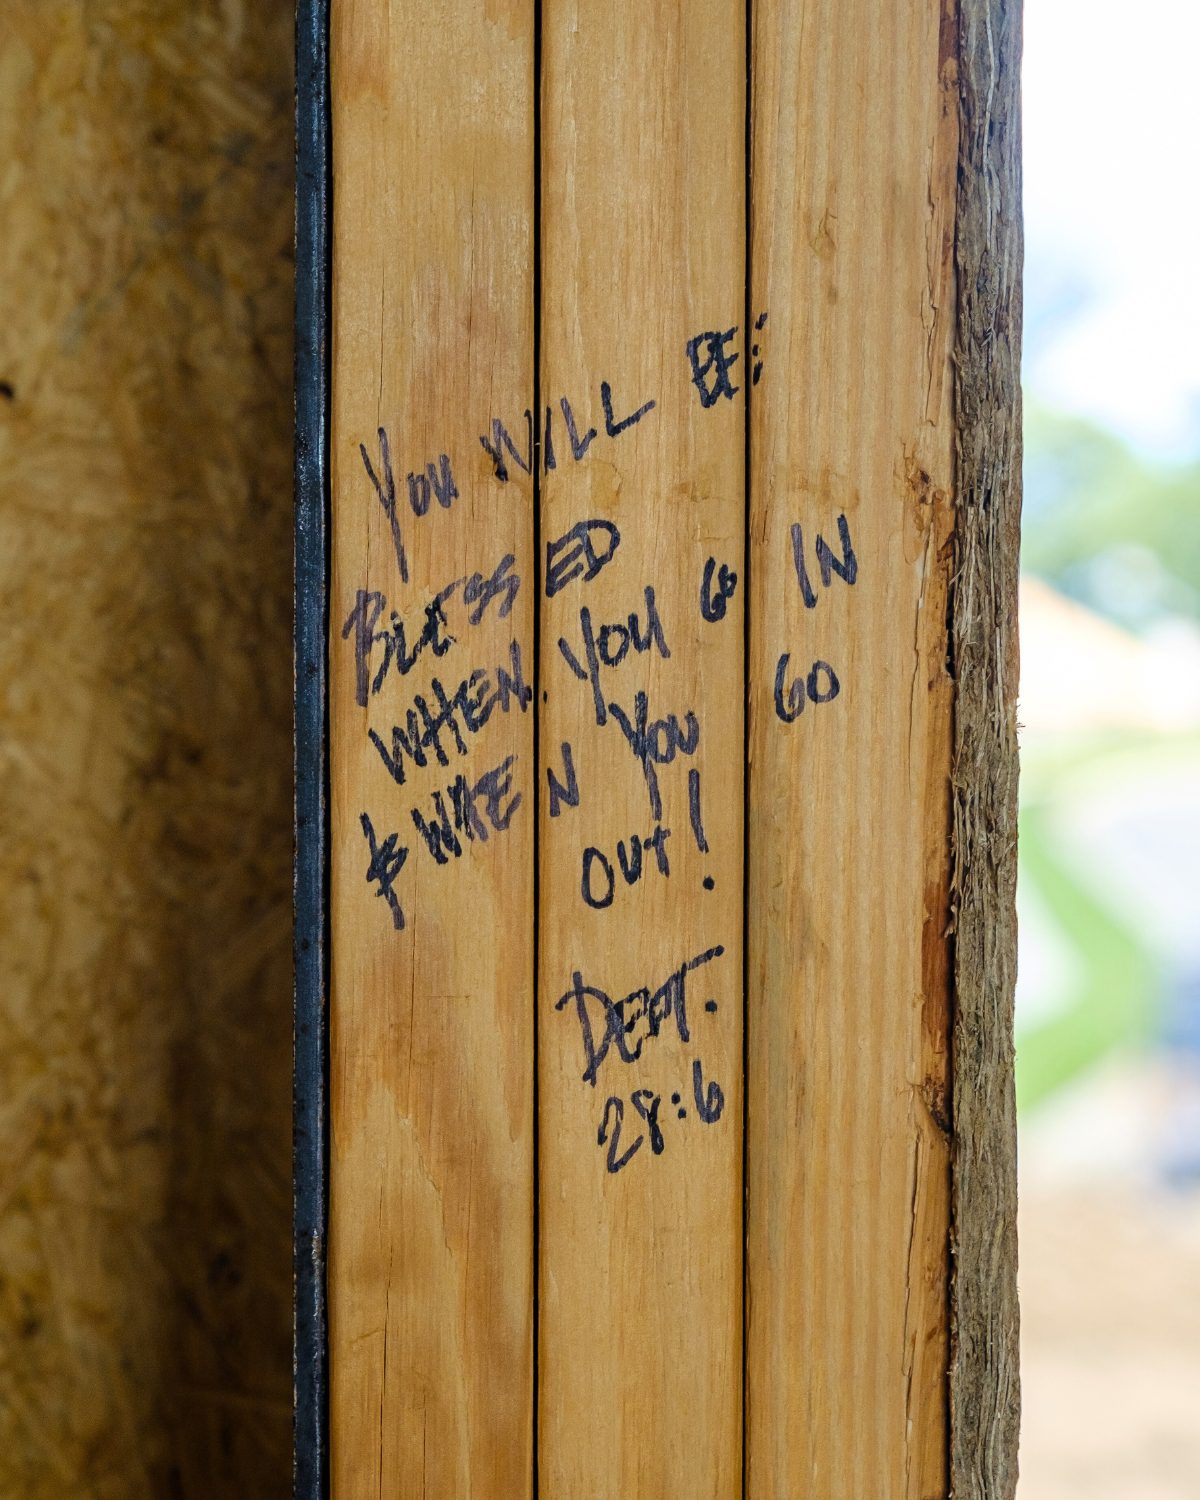 You WILL BE:
BLESSED
WHEN YOU GO IN
& WHEN YOU GO
OUT!
DEUT.
28:6